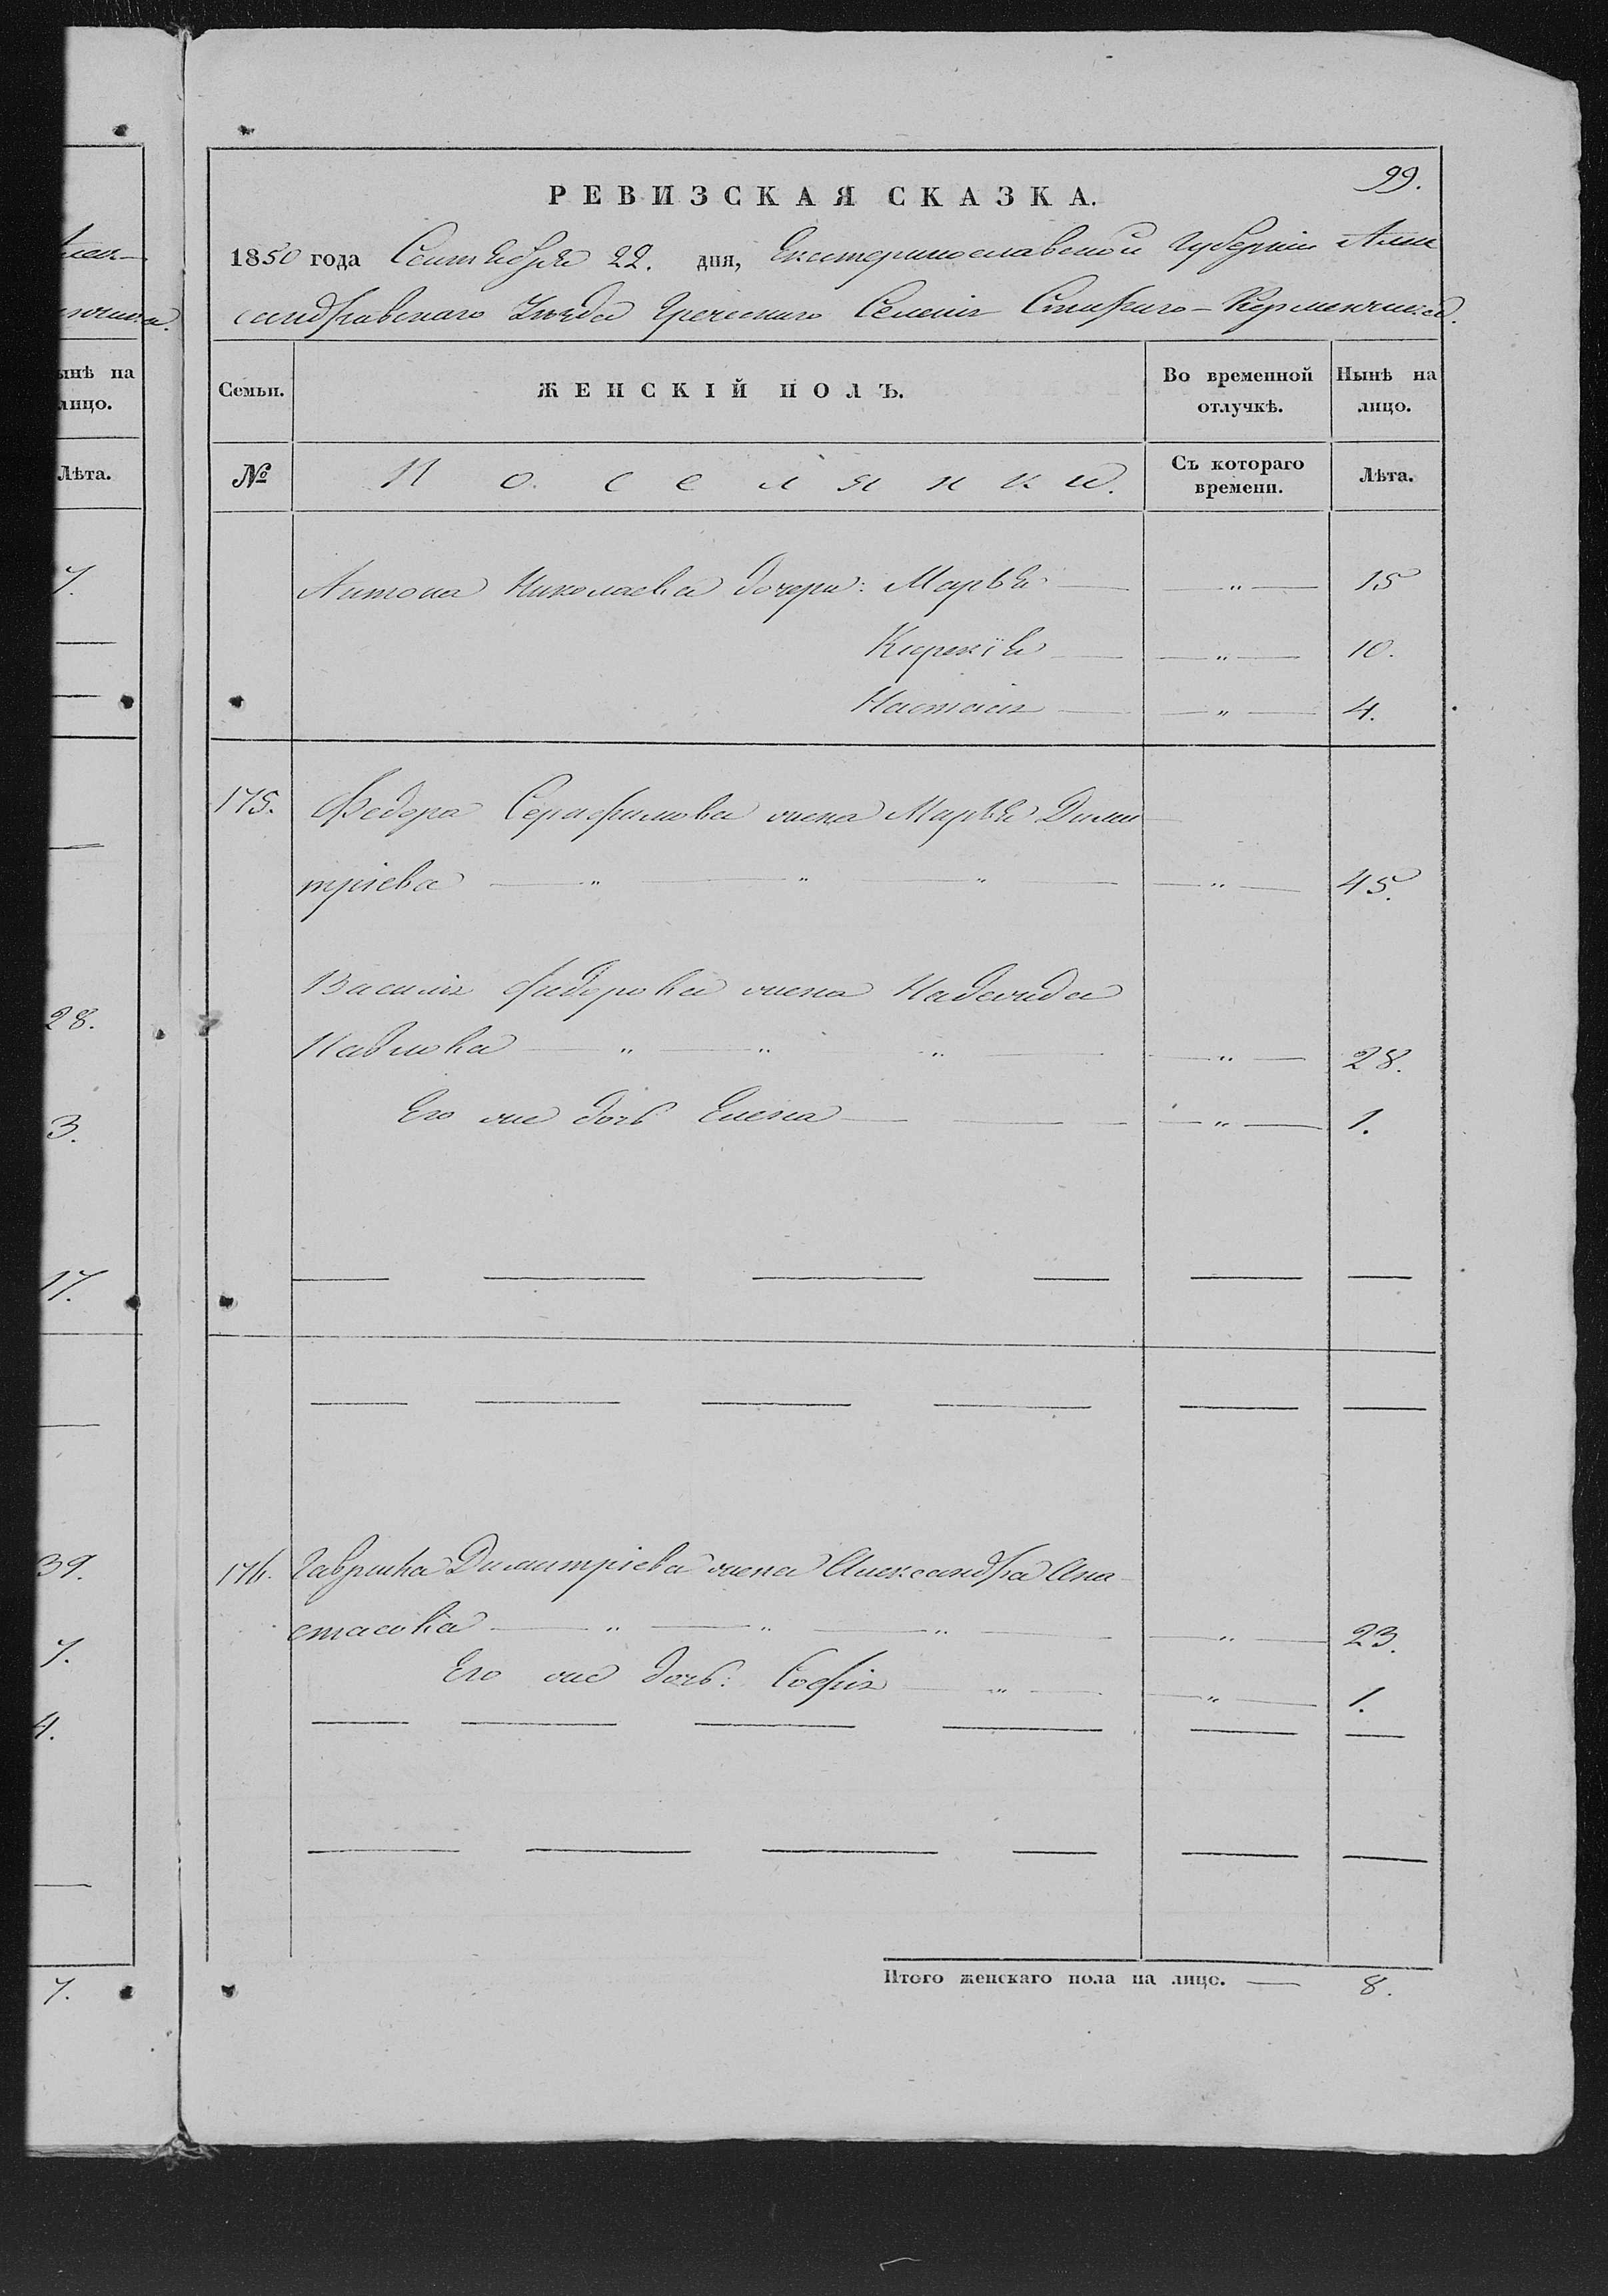 99.
РЕВИЗСКАЯ СКАЗКА.
1850 года Сентября 22. дня, Екатеринославской Губерніи Алек
сандравскаго Уѣзда Греческаго Селенія Стараго-Керменчика.
Семьи.
ЖЕНСКІЙ ПОЛЪ.
Во временной отлучкѣ.
Нынѣ на лицо.
№
Поселянки.
Съ котораго времени.
Лѣта.
Антона Николаева дочери: Марья — " — 15
Кирекія — " — 10.
Настасія — " — 4.
175. Федора Серафимова жена Марья Дими
тріева — " — " — " — " — 45.
Василія Федорова жена Надежда
Павлова — " — " — " — " — 28.
Его же дочь Елена — " — 1.
176. Гавриила Димитріева жена Александра Ана
стасова — " — " — " — " — 23.
Его же дочь: Софія — " — " — 1.
Итого женскаго пола на лицо. — 8.
ынѣ на
лицо.
Лѣта.
7.
28.
3.
17.
39.
7.
4.
7.